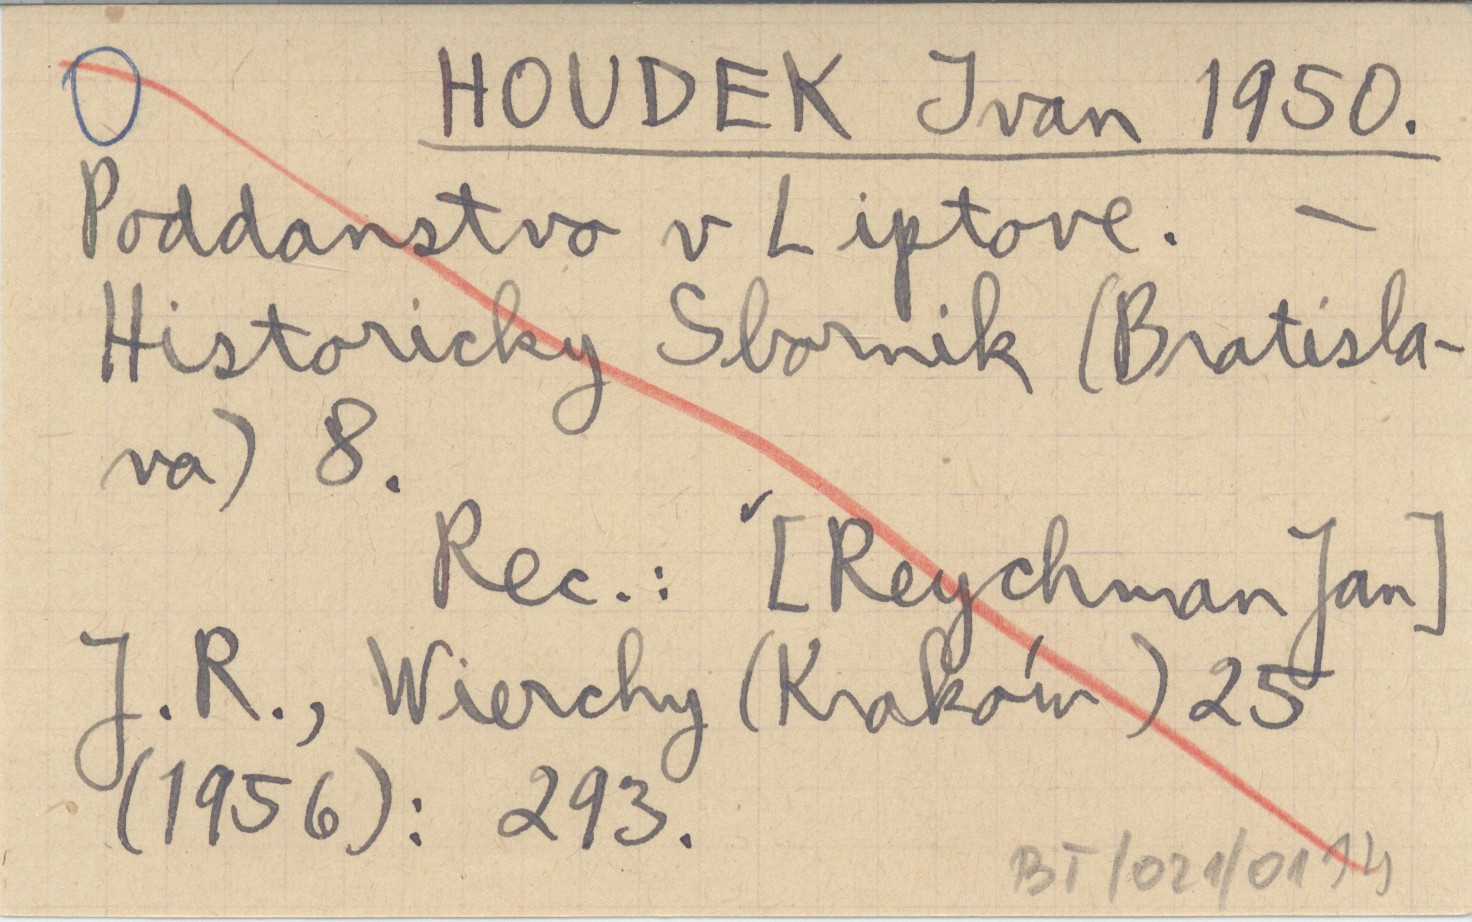 HOUDEK Ivan 1950.
Poddanstvo v Liptove. —
Historicky Sbornik (Bratisla-
va) 8.
Rec.: [Reychman Jan]
J.R., Wierchy (Kraków) 25
(1956): 293.
BT/021/0114